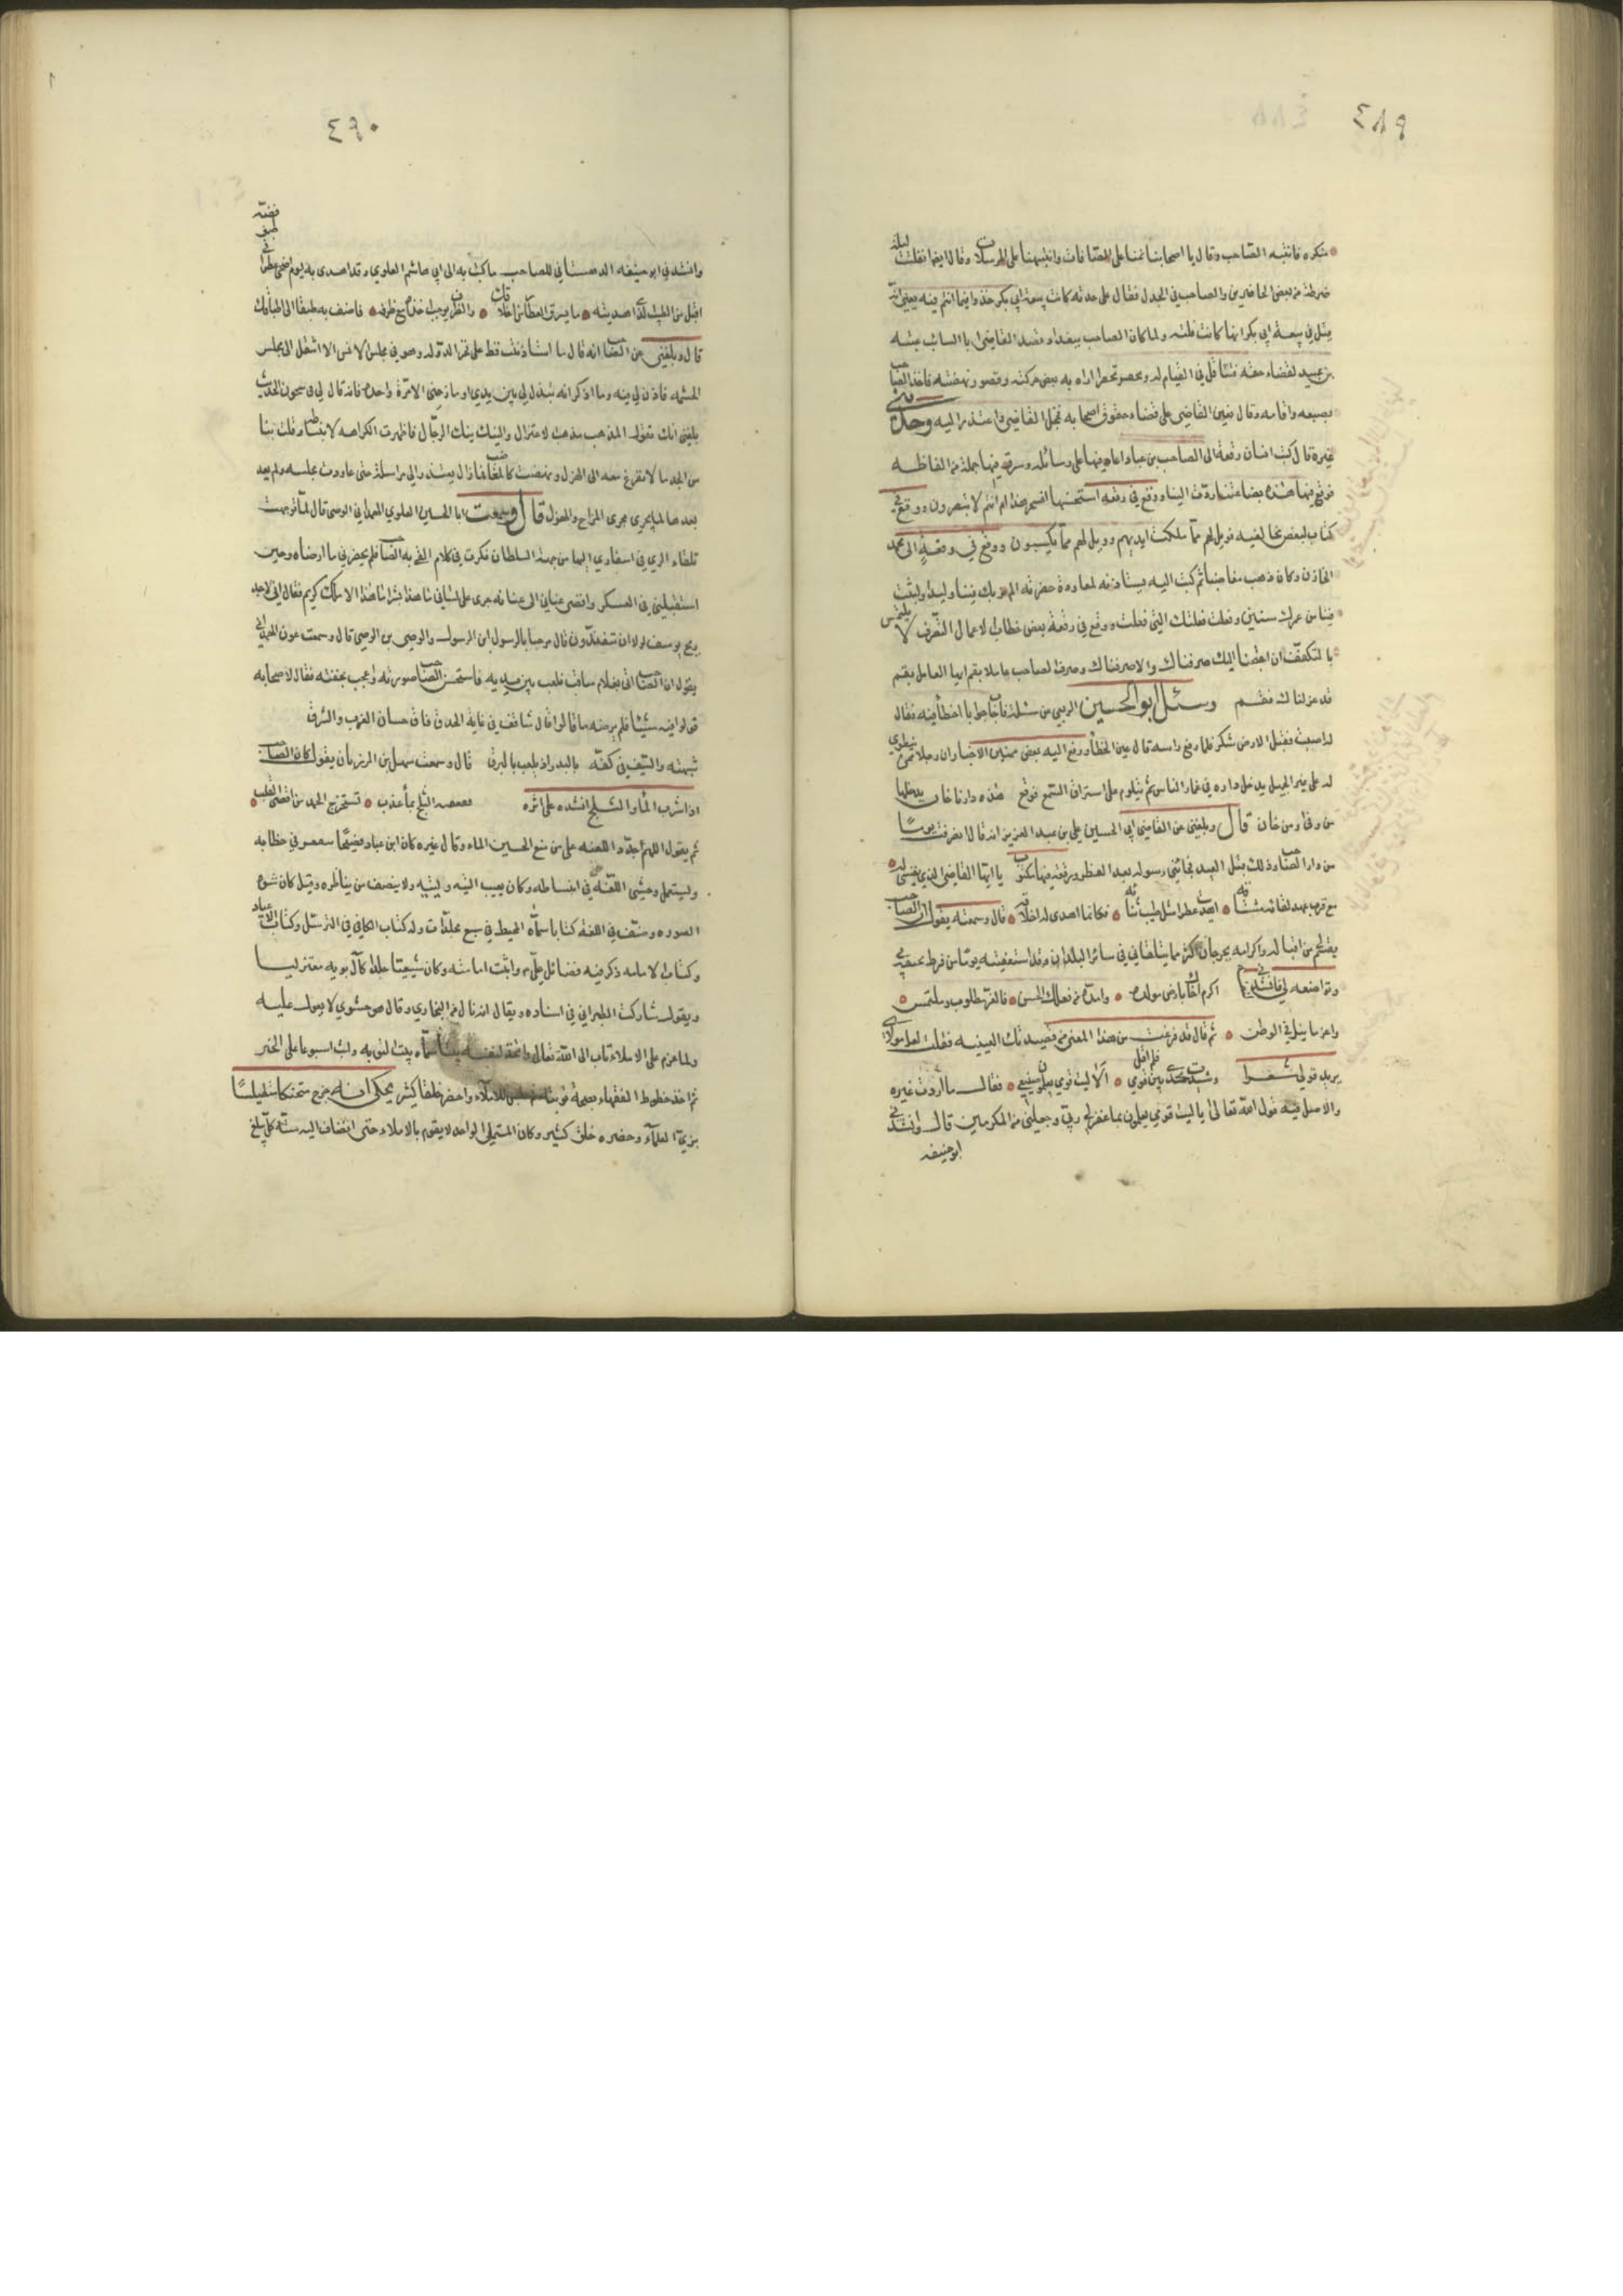 ٤٨٩
منكره فانتبه الصاحب وقال يا اصحابنا نمنا على الصافات وانتبهنا على المرسلات وقال ايضا انفلتت ليلة
ضرطة من بعض الحاضرين والصاحب في الجدل فقال على حدته كانت بيعة ابي بكر خذوا فيما انتم فيه يعني انه
قيل في بيعة ابي بكر انها كانت فلتة ولما كان الصاحب ببغداد وقصد القاضي ابا السائب عتبة
بن عبيد لقضاء حقه فتثاقل في القيام له وتحفز تحفزا اراه به ضعف حركته وقصور نهضته فاخذ الصاحب
بضبعه واقامه وقال نعين القاضي على قضاء حقوق اصحابه فخجل القاضي واعتذر اليه وحدثني
غيره قال كتب انسان رقعة الى الصاحب بن عباد اغار فيها على رسائله وسرق فيها جملة من الفاظه
فوقع فيها هذه بضاعتنا ردت الينا ووقع في رقعة استحسنها افسحر هذا ام انتم لا تبصرون ووقع في
كتاب لبعض مخالفيه فويل لهم مما ملكت ايديهم وويل لهم مما يكسبون ووقع في رقعة الى محمد
الخازن وكان ذهب مغاضبا ثم كتب اليه يستاذنه لمعاودة حضرته الم نربك فينا وليدا ولبثت
فينا من عمرك سنين وفعلت فعلتك التي فعلت ووقع في رقعة بعض خطاب الاعمال التصرف لا يلتمس
بالتكفف ان احتجنا اليك صرفناك والا صرفناك وصرف الصاحب عاملا بقم ايها العامل بقم
قد عزلناك فقم وسئل ابو الحسين الربعي عن مسئلة فاجاب جوابا اخطأ فيه فقال
له اصبت فقبل الارض شكر فلما رفع راسه قال عين الخطأ ورفع اليه بعض منهيي الاخبار ان رجلا ممن ينطوي
له على غير الجميل يدخل داره في غمار الناس ثم يتلوم على استراق السمع فوقع هذه دارنا خان يدخلها
من وفا ومن خان قال وبلغني عن القاضي ابي الحسين علي بن عبد العزيز انه قال انصرفت يوما
من دار الصاحب وذلك قبل العيد فجائني رسوله بعد العطر ورقعة فيها مكتوب يا ايها القاضي الذي نفسي له
مع قرب عهد لقائه مشتاقه اهديت عطرا مثل طيب ثنائه فكانما اهدي له اخلاقه قال وسمعته يقول ان الصاحب
يقسم لي من اقباله واكرامه بجرجان اكثر مما يتلقاني في سائر البلدان وقد استعفيته يوما من فرط تحفيه بي
وتواضعه لي فانشدني اكرم اخاك بارض مولده وامده من فعلك الحسن فالعز مطلوب وملتمس
واعز ما نيل في الوطن ثم قال قد فرغت من هذا المعنى في قصيدتك العينية فقلت لعل مولانا
يريد قولي شعرا وشيدت مجدي بين قومي فلم اقل الا ليت قومي يعلمون صنيعي فقال ما اردت غيره
والاصل فيه قول الله تعالى يا ليت قومي يعلمون بما غفر لي ربي وجعلني من المكرمين قال وانشدني
ابو حنيفه
٤٩٠
وانشدني ابو حنيفه الدهستاني للصاحب ما كتب به الى ابي هاشم العلوي وقد اهدى به يوم اضحى عطرا في طبق فضة
اقبل من الطيب الذي اهديته ما يسرق العطار من اخلاقك والظرف يوجب اخذه مع ظرفه فاضف به طبقا الى اطباقك
قال وبلغني عن الصاحب انه قال ما استأذنت قط على فخر الدوله وهو في مجلس الانس الا انتقل الى مجلس
الحشمه فاذن لي فيه وما اذكر انه تبذل لي بين يدي او مازحني الا مرة واحدة فانه قال لي في شجون الحديث
بلغني انك تقول المذهب مذهب الاعتزال والنيك نيك الرجال فاظهرت الكراهه لانبساطه وقلت بنا
من الجد ما لا نتفرغ معه الى الهزل ونهضت كالمغاضب فما زال يعتذر الي مراسلة حتى عاودت مجلسه ولم يعد
بعدها لما يجري مجرى المزاح والهزل قال وسمعت ابا الحسين العلوي الهمداني الوصي قال لما توجهت
تلقاء الري في سفارتي اليها من جهة السلطان فكرت في كلام القى به الصاحب فلم يحضرني ما ارضاه وحين
استقبلني في العسكر وافضى عناني الى عنانه جرى على لساني ما هذا بشرا ان هذا الا ملك كريم فقال اني لاجد
ريح يوسف لولا ان تفندون قال مرحبا بالرسول ابن الرسول والوصي بن الوصي قال وسمعت عون الهمداني
يقول ان الصاحب اتى بغلام ساقف فلعب بين يديه فاستحسن الصاحب صورته واعجب بخفته فقال لاصحابه
قولوا فيه شيئا فلم يرضه ما قالوا فقال شاقف في غاية الحذق فاق حسان الغرب والشرق
شبهته والسيف في كفه بالبدر اذ يلعب بالبرق قال وسمعت سهل بن المرزبان يقول كان الصاحب
اذا شرب الماء والثلج انشده على اثره قعقعة الثلج بماء عذب تستخرج الحمد من اقصى القلب
ثم يقول اللهم جدد اللعنه على من منع الحسين الماء وقال غيره كان ابن عباد فصيحا يتقعر في خطابه
ويستعمل وحشي اللغه في انبساطه وكان يعيب التيه ويتيه ولا ينصف من يناظره وقيل كان مشوه
الصوره وصنف في اللغه كتابا سماه المحيط في سبع مجلدات وله كتاب الكافي في الترسل وكتاب الاعياد
وكتاب الامامه ذكر فيه فضائل علي وأثبت امامته وكان شيعيا جلدا كآل بويه معتزليا
ويقول شاركت الطبراني في اسناده ويقال انه نال من البخاري وقال هو حشوي لا يعول عليه
ولما عزم على الاملاء تاب الى الله تعالى واتخذ لنفسه بيتا سماه بيت التوبه ولبث اسبوعا على الخير
ثم اخذ خطوط الفقهاء بصحة توبته ثم جلس للاملاء واحضر خلقا كثير يحكى انه خرج متحنكا متطيلسا
بزي العلماء وحضره خلق كثير وكان المستملي الواحد لا يقوم بالاملاء حتى انضاف اليه ستة كل يبلغ